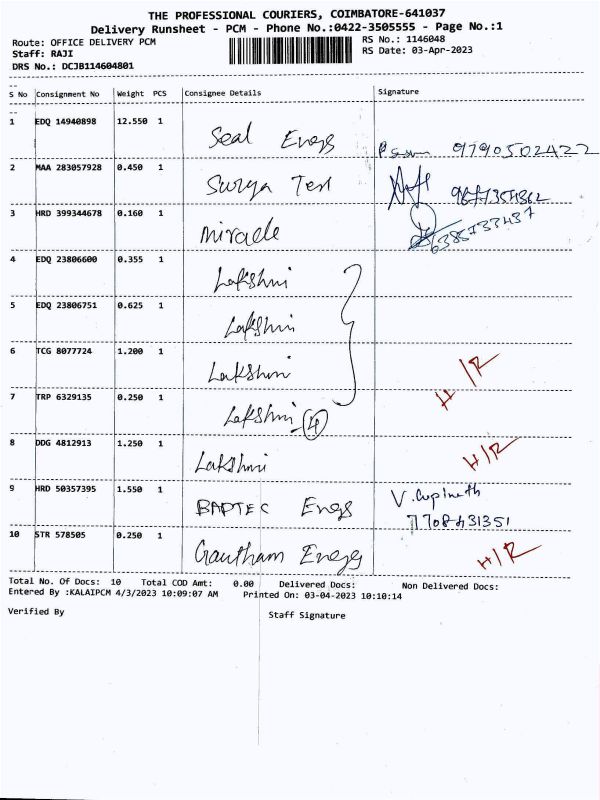 THE PROFESSIONAL COURIERS, COIMBATORE-641037
Delivery Runsheet - PCM - Phone No.:0422-3505555 - Page No.:1
Route: OFFICE DELIVERY PCM
RS No.: 1146048
Staff: RAJI
RS Date: 03-Apr-2023
DRS No.: DCJB114604801
S No Consignment No Weight PCS Consignee Details Signature
1 EDQ 14940898 12.550 1 Seal Enggs 9790502422
2 MAA 283057928 0.450 1 Surya Text
3 HRD 399344678 0.160 1 miracle
4 EDQ 23806600 0.355 1 Lakshmi
5 EDQ 23806751 0.625 1 Lakshmi
6 TCG 8077724 1.200 1 Lakshmi
7 TRP 6329135 0.250 1 Lakshmi - 4 H/R
8 DDG 4812913 1.250 1 Lakshmi H/R
9 HRD 50357395 1.550 1 BAPTEC Enggs V. Gopinath
7708431351
10 STR 578505 0.250 1 Gautham Enggs H/R
Total No. Of Docs: 10 Total COD Amt: 0.00 Delivered Docs: Non Delivered Docs:
Entered By :KALAIPCM 4/3/2023 10:09:07 AM Printed On: 03-04-2023 10:10:14
Verified By Staff Signature